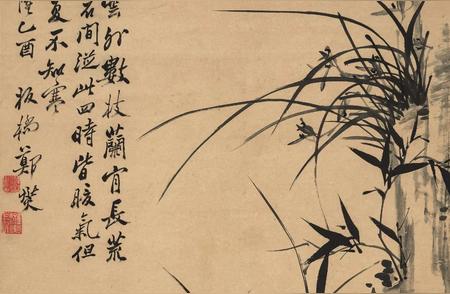 雲外數枝蘭長荒
石間從此四時皆暖氣但
夏不知寒
乙酉板橋鄭燮